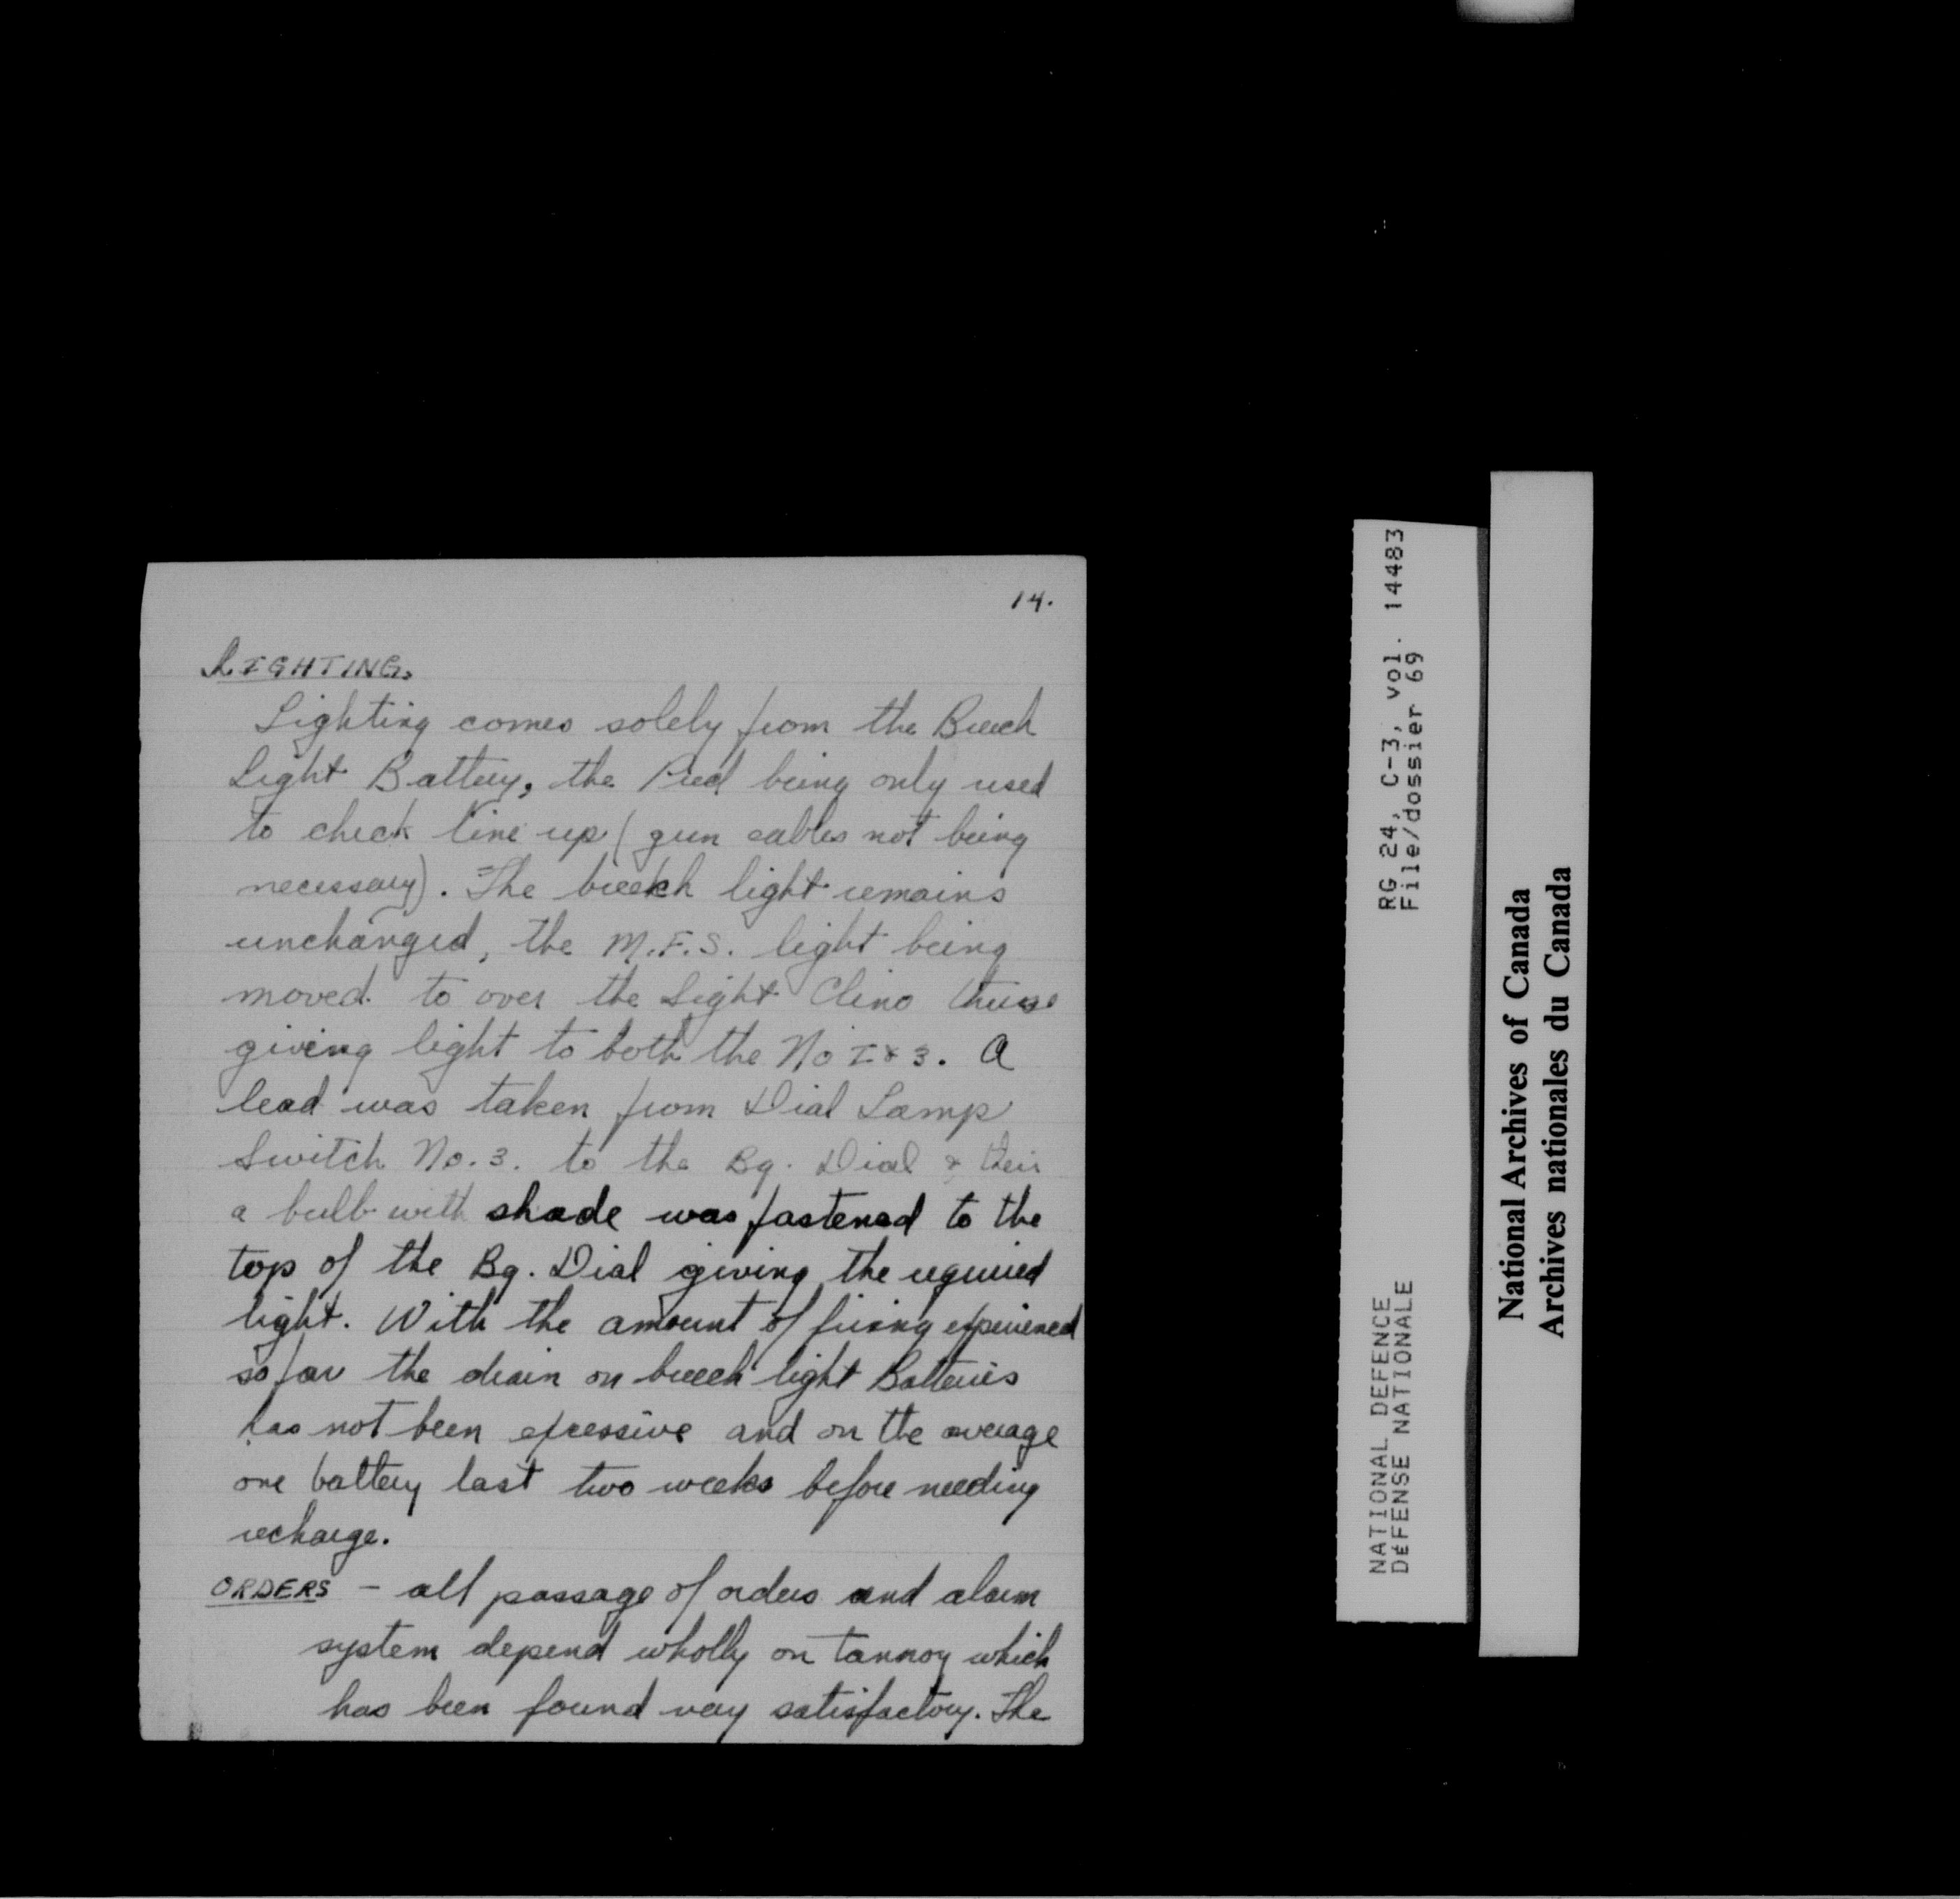 14.
LIGHTING.
Lighting comes solely from the Breech
Light Battery, the Pred being only used
to check line up (gun cables not being
necessary). The breech light remains
unchanged, the M.F.S. light being
moved to over the Sight Clino thus
giving light to both the No I & 3. A
lead was taken from Dial Lamp
Switch No. 3. to the Bg. Dial &
a bulb with shade was fastened to the
top of the Bg. Dial giving the required
light. With the amount of firing experienced
so far the drain on breech light Batteries
has not been excessive and on the average
one battery last two weeks before needing
recharge.
ORDERS - all passage of orders and alarm
system depend wholly on tannoy which
has been found very satisfactory. The
RG 24, C-3, vol. 14483
File/dossier 69
NATIONAL DEFENCE
DÉFENSE NATIONALE
National Archives of Canada
Archives nationales du Canada